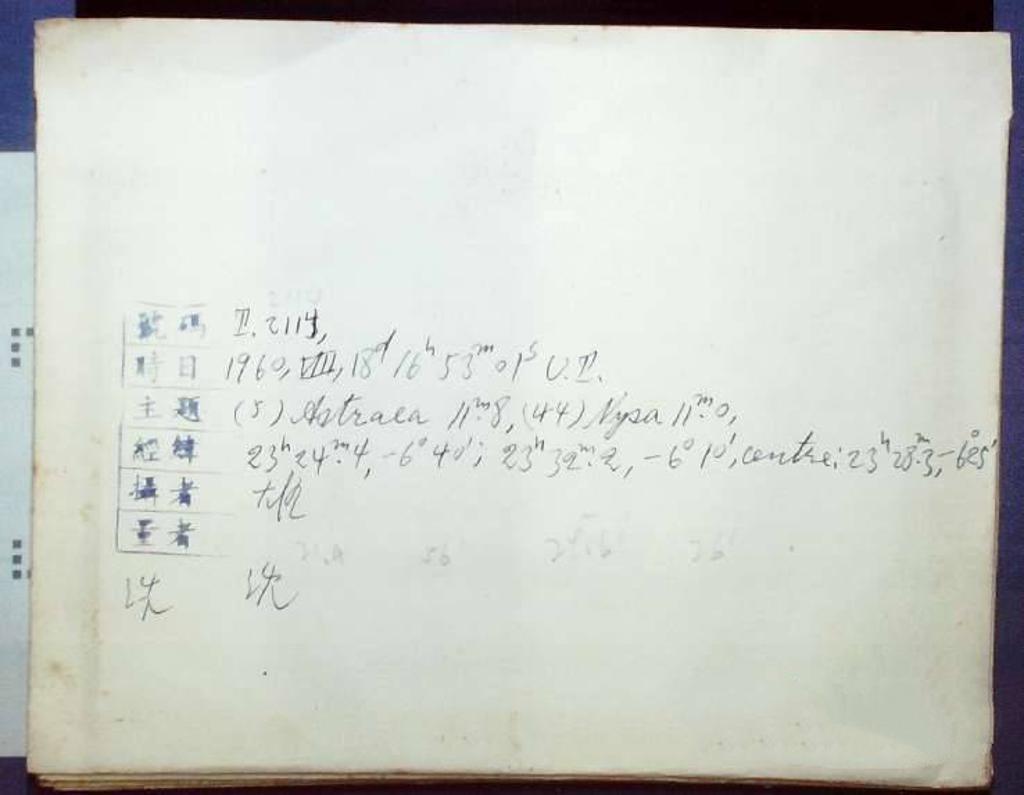 號碼 II. 2114,
時日 1960, VIII, 18ᵈ 16ʰ 53ᵐ 01ˢ U.T.
主題 (5) Astraea 11ᵐ.8, (44) Nysa 11ᵐ.0,
經緯 23ʰ 24ᵐ.4, -6° 40'; 23ʰ 32ᵐ.2, -6° 10', centre: 23ʰ 28ᵐ.3, -6°25'
攝者
量者
沈 沈